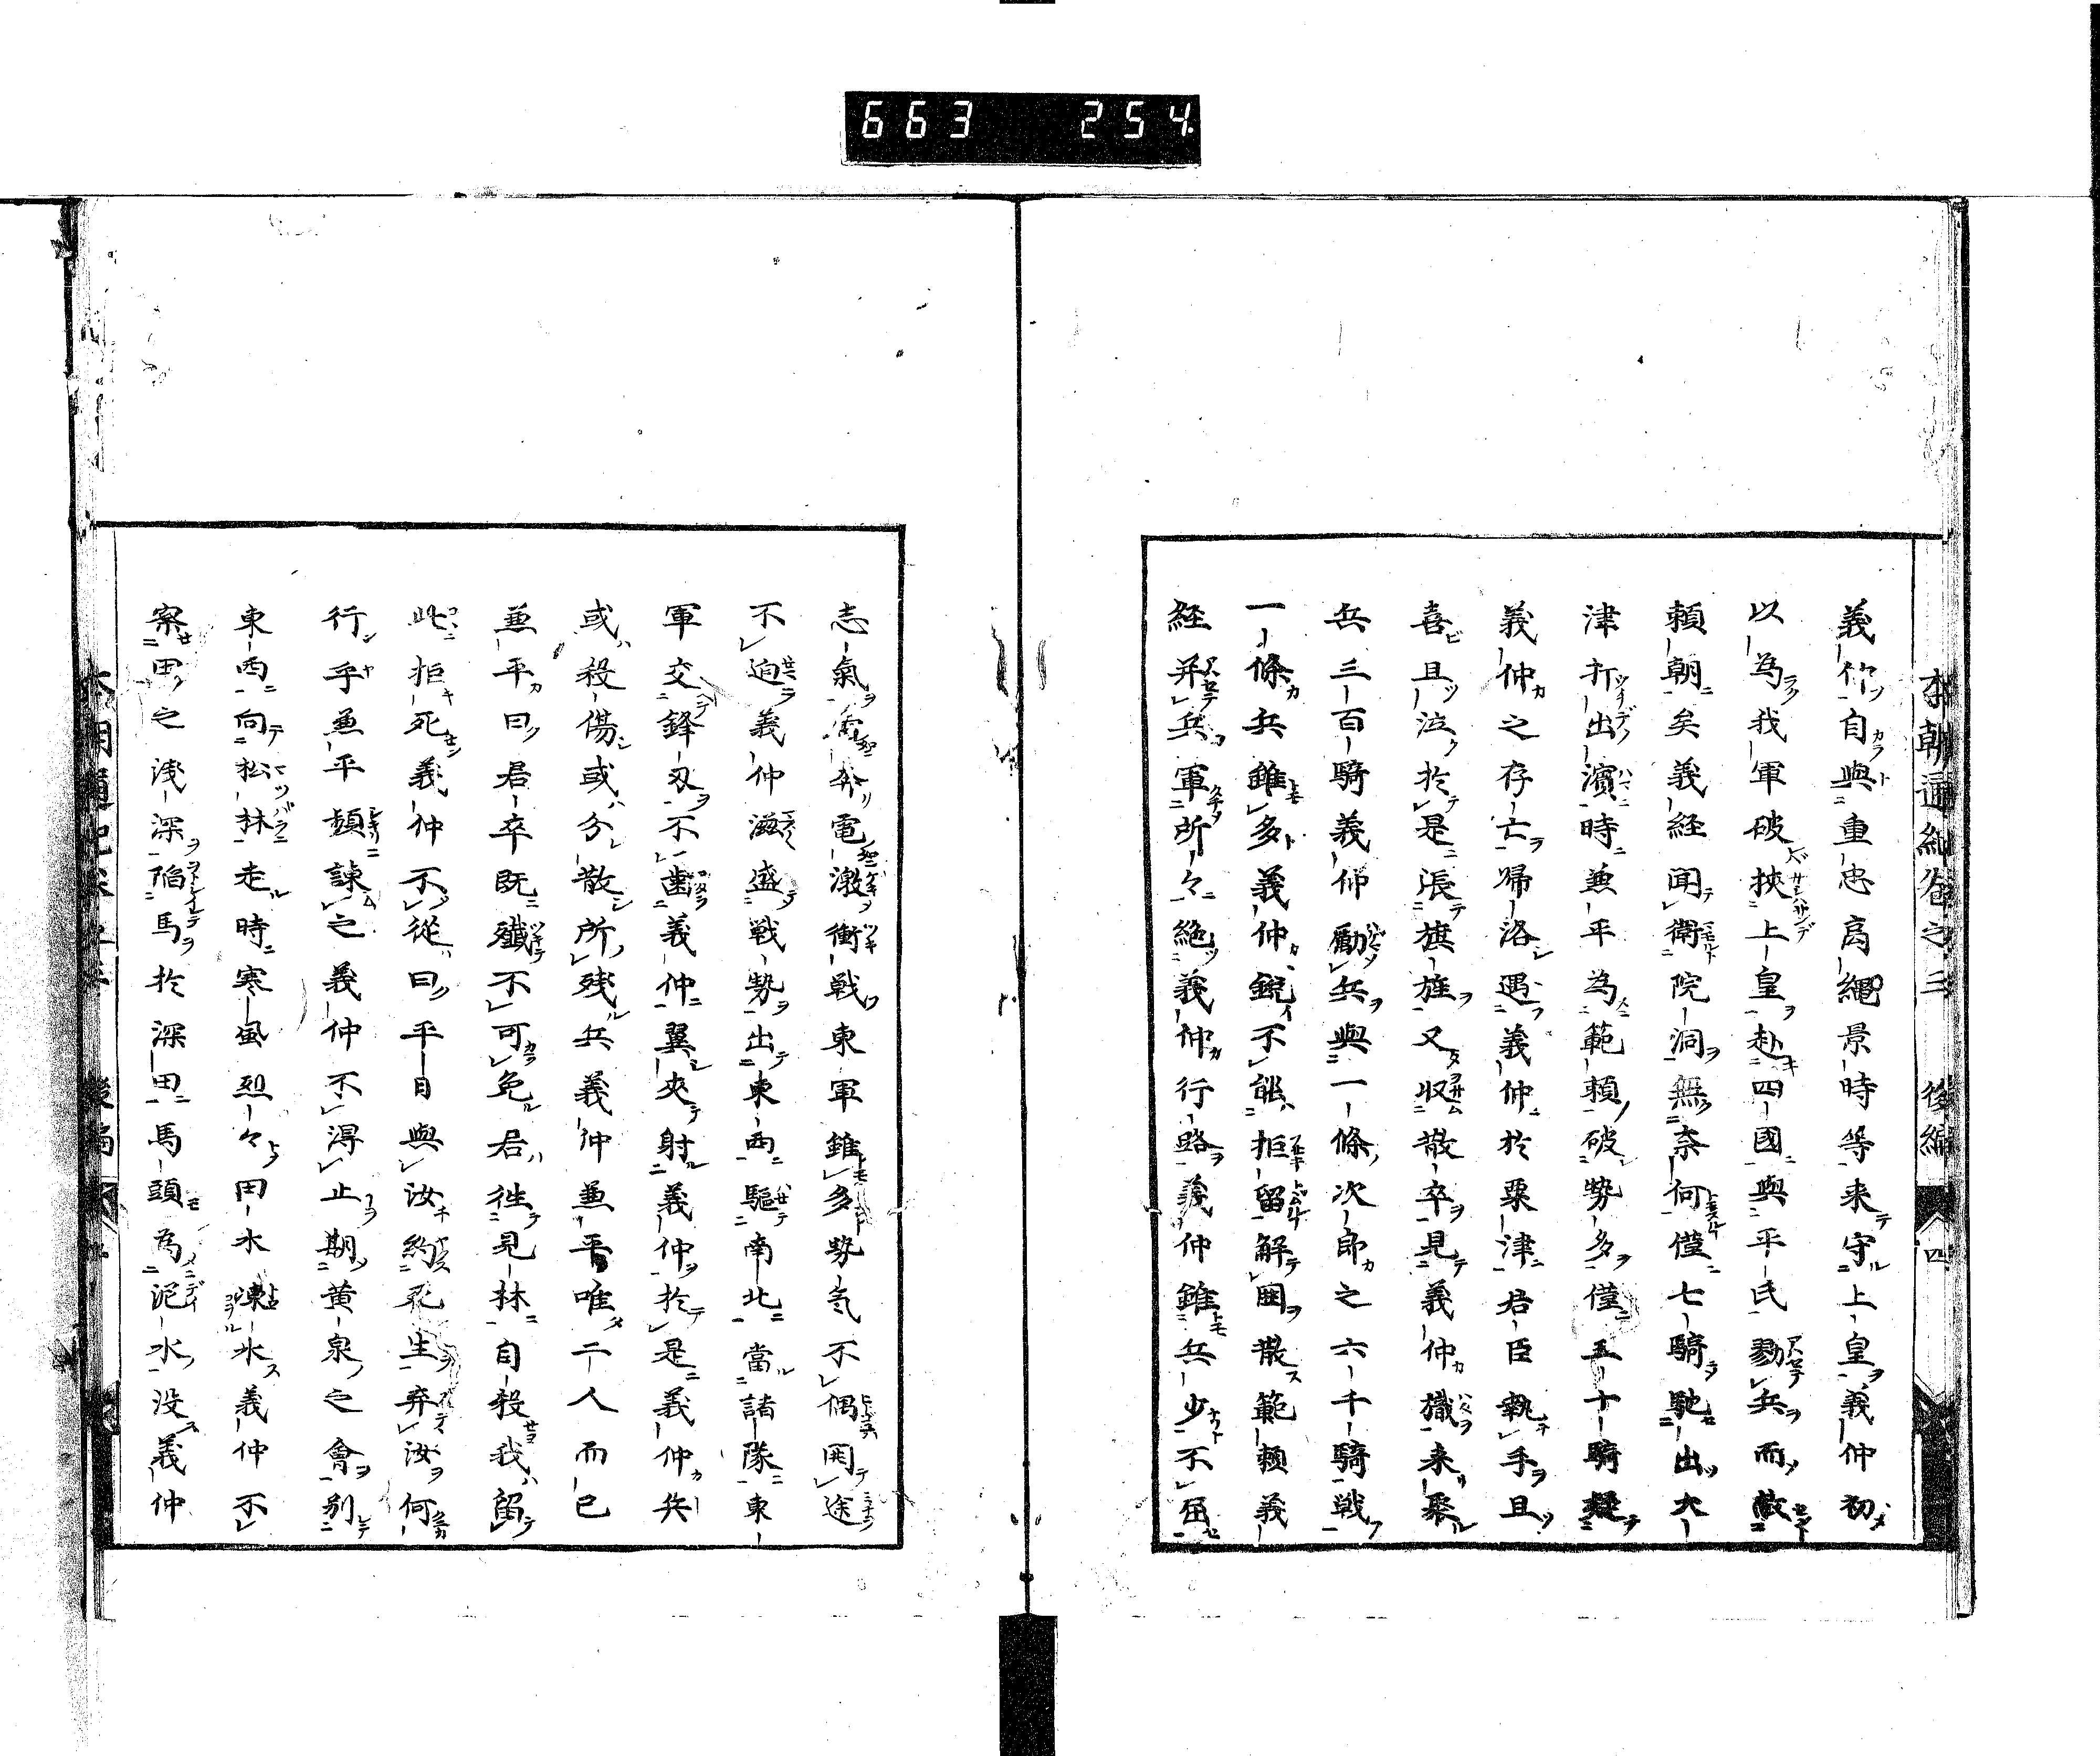 663 254
本朝通紀卷之三 後編 四
義仲自與重忠高綱景時等來守上皇義仲初
以為我軍破挾上皇赴四國與平氏勠兵而敵
頼朝矣義経聞衛院洞無奈何僅七騎馳出大
津打出濱時兼平為範頼破勢多僅五十騎疑
義仲之存亡帰洛遇義仲於粟津君臣執手且
喜且泣於是張旗旌又収散卒見義仲幟来聚
兵三百騎義仲勵兵與一條次郎之六千騎戦
一條兵雖多義仲鋭不能拒留解囲散範頼義
経并兵軍所々絶義仲行路義仲雖兵少不屈
志氣雷奔電激衝戦東軍雖多勢気不偶罔途
不迫義仲滋盛戦勢出東西駆南北當諸隊東
軍交鋒刃不歯義仲翼夾射義仲於是義仲兵
或殺傷或分散所残兵義仲兼平唯二人而已
兼平曰君卒既殲不可免君往見林自殺我留
此拒死義仲不従曰平日與汝約死生弃汝何
行乎兼平頻諫之義仲不得止期黄泉之會別
東西向松林走時寒風烈々田水凍氷義仲不
察田之浅深陥馬於深田馬頭為泥水没義仲